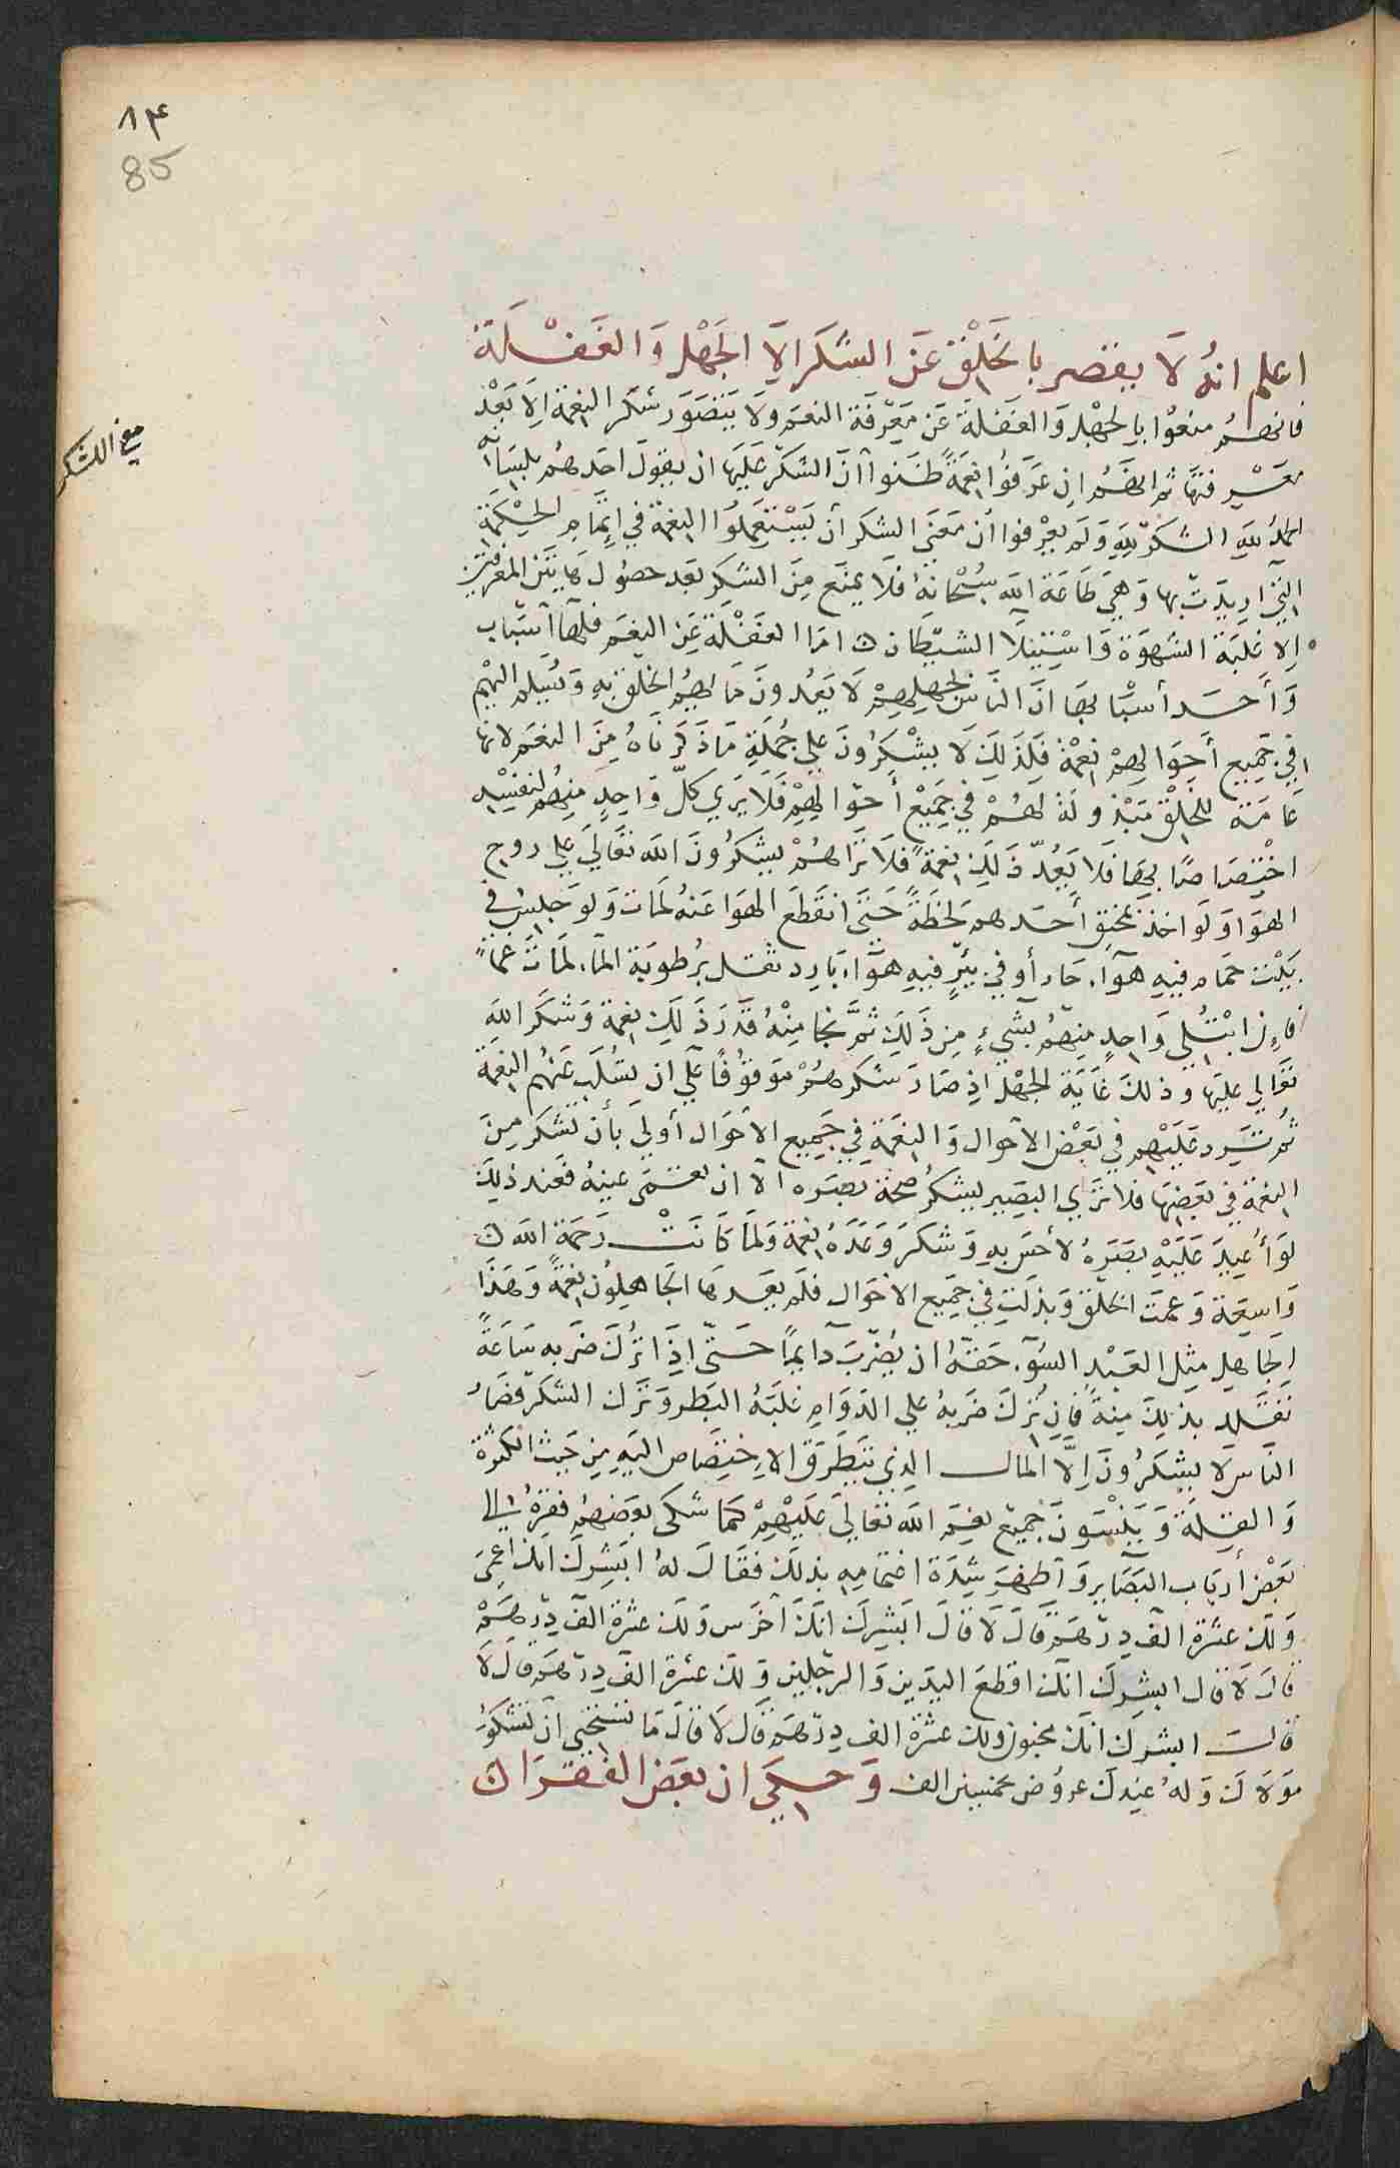 ٨٤
85
معنى الشكر
اعلم انه لا يقصر بالخلق عن الشكر الا الجهل والغفلة
فانهم منعوا بالجهل والغفلة عن معرفة النعم ولا يتصور شكر النعمة الا بعد
معرفتها ثم انهم ان عرفوا نعمة ظنوا أن الشكر عليها ان يقول احدهم بلسانه
الحمد لله الشكر لله ولم يعرفوا أن معنى الشكر أن يستعملوا النعمة في اتمام الحكمة
التي اريدت بها وهي طاعة الله سبحانه فلا يمنع من الشكر بعد حصول هاتين المعرفتين
الا غلبة الشهوة واستيلا الشيطان اما الغفلة عن النعم فلها اسباب
وأحد أسبابها ان الناس لجهلهم لا يعدون ما لهم الخلق به ويسلم اليهم
في جميع أحوالهم نعمة فلذلك لا يشكرون علي جملة ما ذكرناه من النعم لانها
عامة للخلق مبذولة لهم في جميع أحوالهم فلا يري كل واحد منهم لنفسه
اختصاصا بها فلا يعد ذلك نعمة فلا تراهم يشكرون الله تعالي علي روح
الهوا ولو اخذ بمخنق أحدهم لحظة حتى انقطع الهوا عنه لمات ولو جلس في
بيت حمام فيه هوآء حار أو في بئر فيه هوآء بارد ثقل برطوبة المآء لمات غما
فإن ابتلي واحد منهم بشيء من ذلك ثم نجا منه قدر ذلك نعمة وشكر الله
تعالي عليها وذلك غاية الجهل اذ صار شكرهم موقوفا علي ان تسلب عنهم النعمة
ثم ترد عليهم في بعض الاحوال والنعمة في جميع الاحوال أولي بأن تشكر من
النعمة في بعضها فلا تري البصير يشكر صحة بصره الا ان تعمى عينه فعند ذلك
لو أعيد عليه بصره لأحس به وشكر وعده نعمة ولما كانت رحمة الله
واسعة وعمت الخلق وبذلت في جميع الاحوال فلم يعدها الجاهلون نعمة وهذا
الجاهل مثل العبد السوء حقه ان يضرب دايما حتى اذا ترك ضربه ساعة
تقلد بذلك منة فإن ترك ضربه علي الدوام غلبه البطر وترك الشكر فصار
الناس لا يشكرون الا المال الذي يتطرق الاختصاص اليه من حيث الكثرة
والقلة وينسون جميع نعم الله تعالي عليهم كما شكى بعضهم فقره الي
بعض أرباب البصاير وأظهر شدة اغتمامه بذلك فقال له ايشرك انك اعمى
ولك عشرة الف درهم قال لا قال ايشرك انك اخرس ولك عشرة الف درهم
قال لا قال ايشرك انك اقطع اليدين والرجلين ولك عشرة الف درهم قال لا
قال ايشرك انك مجنون ولك عشرة الف درهم قال لا قال ما تستحي أن تشكو
مولاك وله عندك عروض بخمسين الف وحكي ان بعض الفقرا